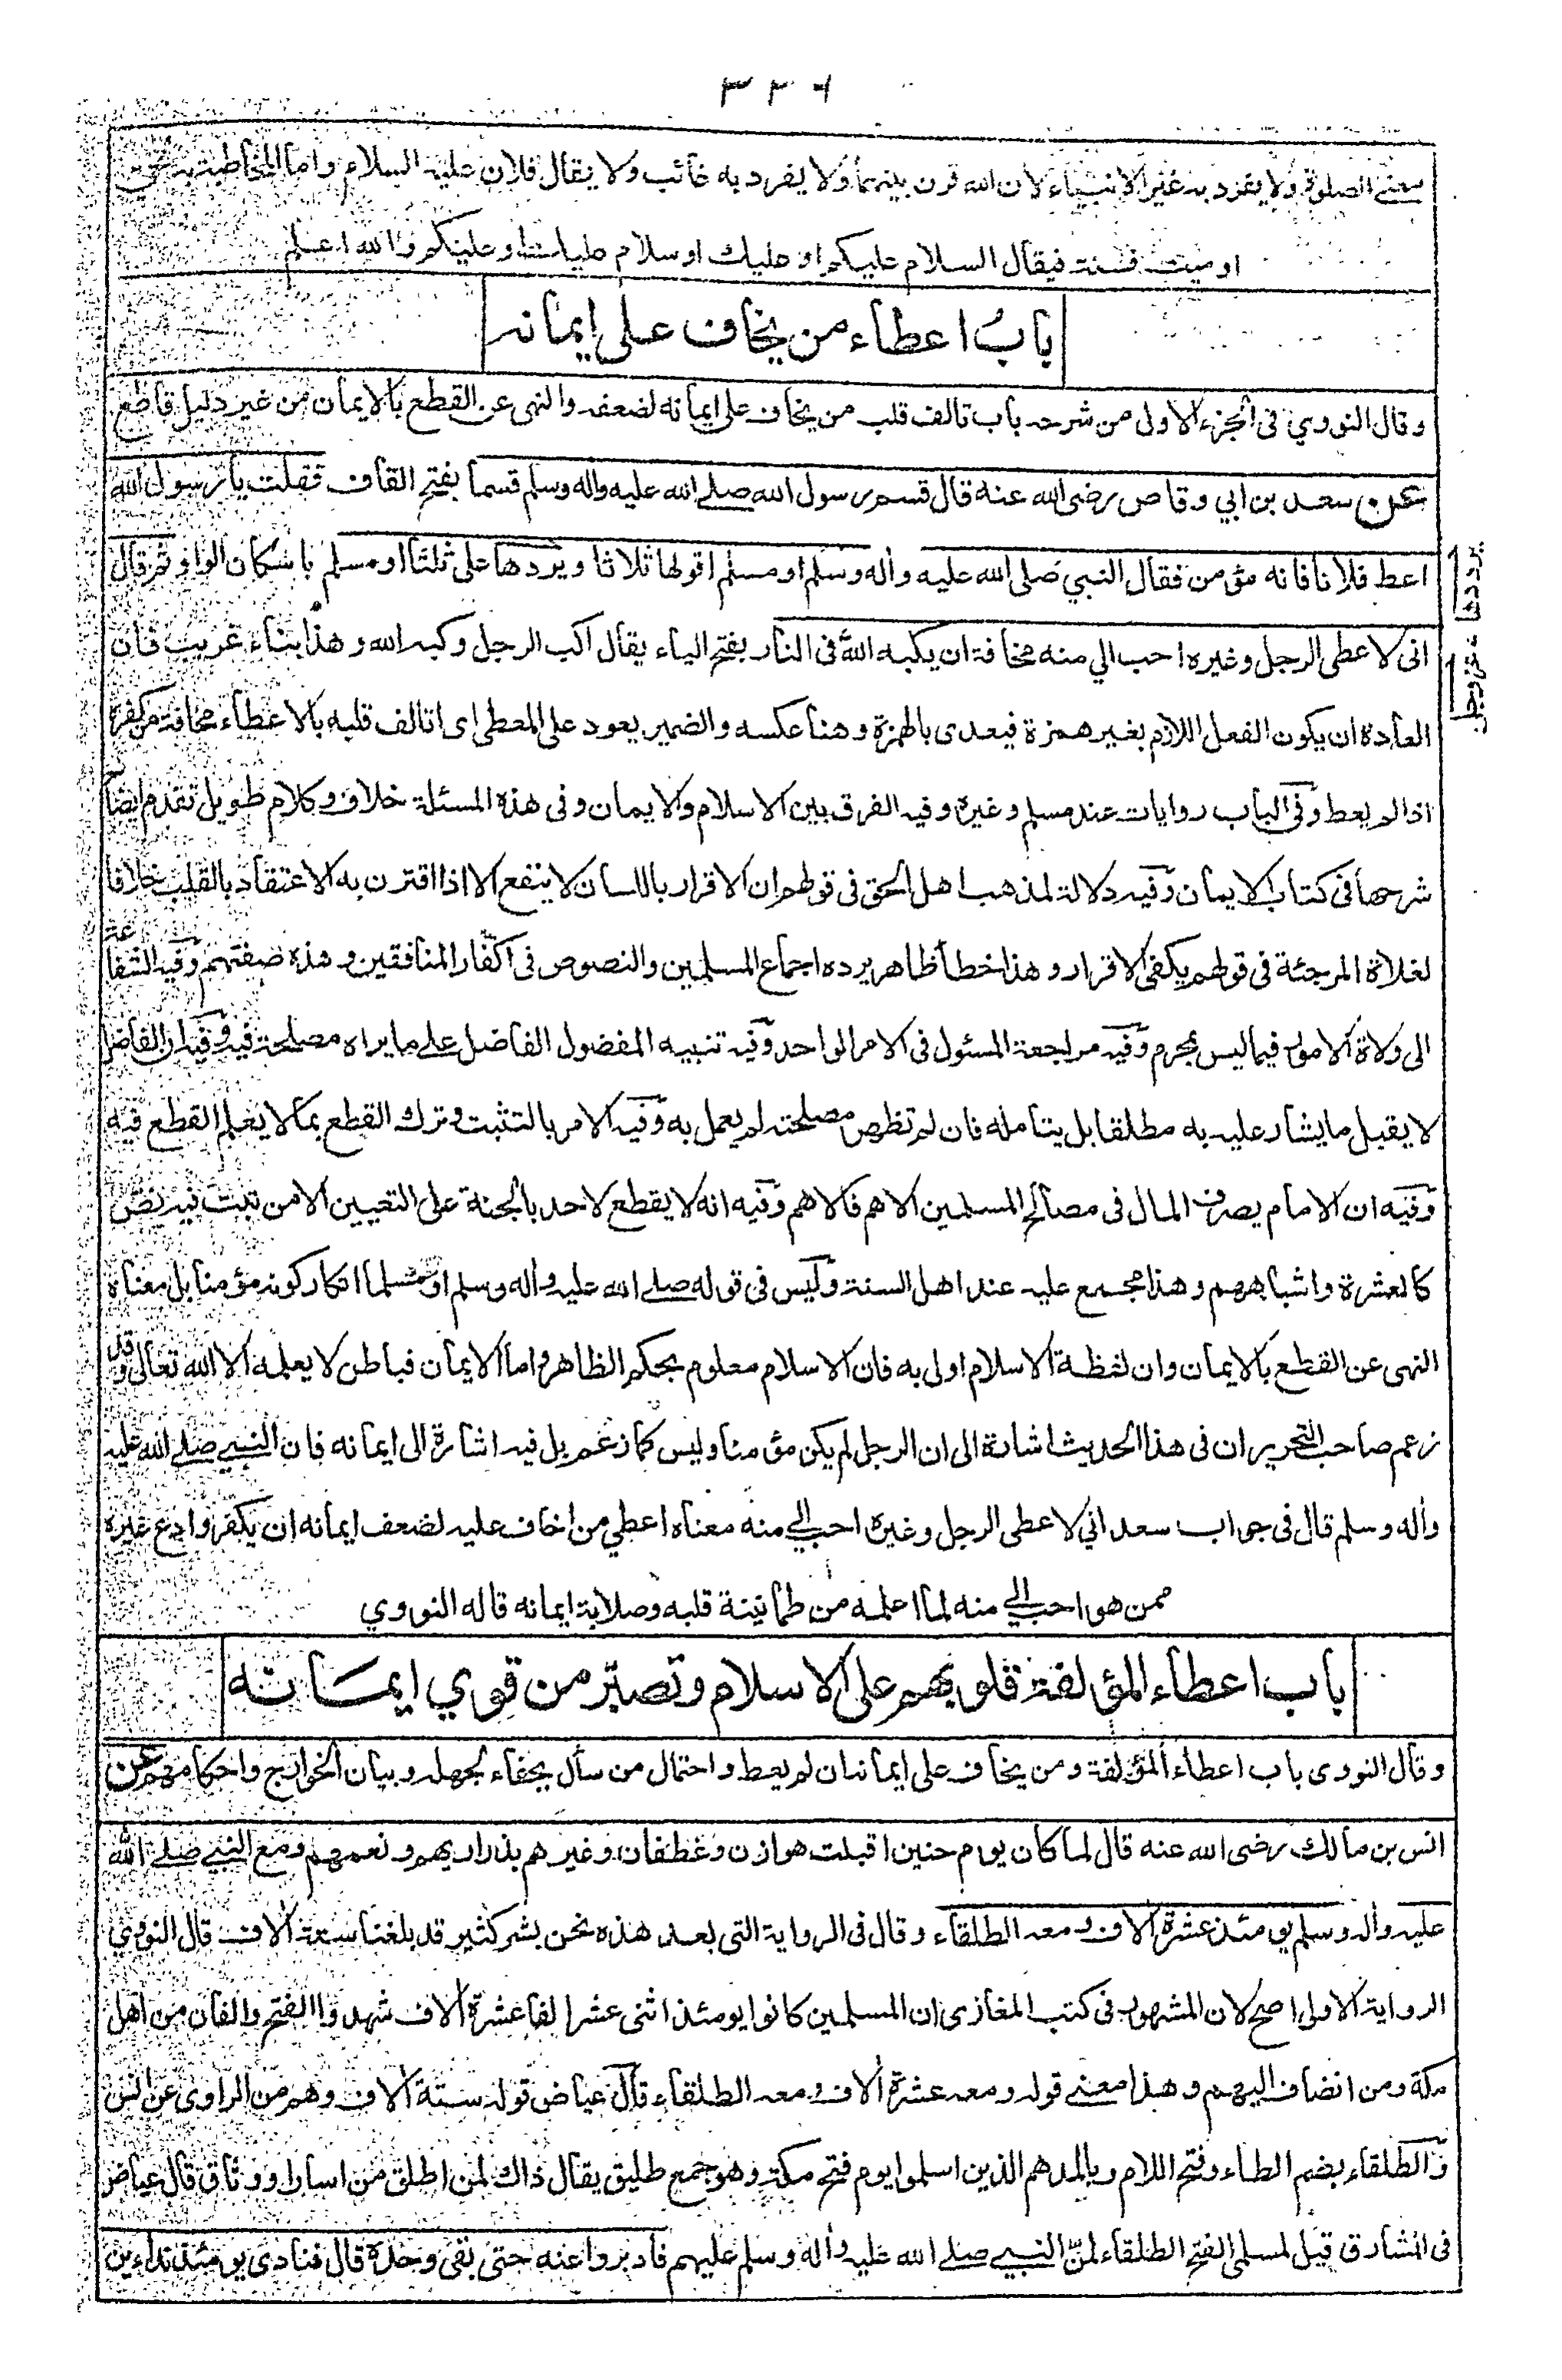 ٣٣٦
معنى الصلوة ولا يفرد به غير الانبياء لان الله قرن بينهما ولا يفرد به غائب ولا يقال فلان عليه السلام واما المخاطبة به لحي
او ميت فسنة فيقال السلام عليكم او عليك او سلام عليك او عليكم والله اعلم
باب اعطاء من يخاف على ايمانه
وقال النووي فى الجزء الاول من شرحه باب تالف قلب من يخاف على ايمانه لضعفه والنهى عن القطع بالايمان من غير دليل قاطع
عن سعد بن ابي وقاص رضى الله عنه قال قسم رسول الله صلى الله عليه واله وسلم قسما بفتح القاف فقلت يا رسول الله
اعط فلانا فانه مؤمن فقال النبي صلى الله عليه واله وسلم او مسلم اقولها ثلاثا ويرددها على ثلثا او مسلم باسكان الواو ثم قال
يرددها
انى لاعطى الرجل وغيره احب الي منه مخافة ان يكبه الله فى النار بفتح الياء يقال اكب الرجل وكبه الله وهذا بناء غريب فان
عز وجل
العادة ان يكون الفعل اللازم بغير همزة فيعدى بالهمزة وهنا عكسه والضمير يعود على المعطى اى اتالف قلبه بالاعطاء مخافة من كفره
اذا لم يعط وفى الباب روايات عند مسلم وغيره وفيه الفرق بين الاسلام والايمان وفى هذه المسئلة خلاف وكلام طويل تقدم ايضاح
شرحها فى كتاب الايمان وفيه دلالة لمذهب اهل الحق فى قولهم ان الاقرار باللسان لا ينفع الا اذا اقترن به الاعتقاد بالقلب خلافا
لغلاة المرجئة فى قولهم يكفى الاقرار وهذا خطأ ظاهر يرده اجماع المسلمين والنصوص فى اكفار المنافقين وهذه صفتهم وفيه الشفاعة
الى ولاة الامور فيما ليس بمحرم وفيه مراجعة المسئول فى الامر الواحد وفيه تنبيه المفضول الفاضل على ما يراه مصلحة فيه وفيه ان الفاضل
لا يقبل ما يشار عليه به مطلقا بل يتأمله فان لم تظهر مصلحته لم يعمل به وفيه الامر بالتثبت وترك القطع بما لا يعلم القطع فيه
وفيه ان الامام يصرف المال فى مصالح المسلمين الاهم فالاهم وفيه انه لا يقطع لاحد بالجنة على التعيين الا من ثبت فيه نص
كالعشرة واشباههم وهذا مجمع عليه عند اهل السنة وليس فى قوله صلى الله عليه واله وسلم او مسلما انكار كونه مؤمنا بل معناه
النهى عن القطع بالايمان وان لفظة الاسلام اولى به فان الاسلام معلوم بحكم الظاهر واما الايمان فباطن لا يعلمه الا الله تعالى وقد
زعم صاحب التحرير ان فى هذا الحديث اشارة الى ان الرجل لم يكن مؤمنا وليس كما زعم بل فيه اشارة الى ايمانه فان النبي صلى الله عليه
واله وسلم قال فى جواب سعد انى لاعطى الرجل وغيره احب الي منه معناه اعطي من اخاف عليه لضعف ايمانه ان يكفر وادع غيره
ممن هو احب الي منه لما اعلمه من طمانينة قلبه وصلابة ايمانه قاله النووي
باب اعطاء المؤلفة قلوبهم على الاسلام وتصبر من قوي ايمانه
وقال النووى باب اعطاء المؤلفة ومن يخاف على ايمانه ان لم يعط واحتمال من سأل بجفاء لجهله وبيان الخوارج واحكامهم عن
انس بن مالك رضى الله عنه قال لما كان يوم حنين اقبلت هوازن وغطفان وغيرهم بذراريهم ونعمهم ومع النبي صلى الله
عليه واله وسلم يومئذ عشرة الاف ومعه الطلقاء وقال فى الرواية التى بعد هذه نحن بشر كثير قد بلغنا ستة الاف قال النووي
الرواية الاولى اصح لان المشهور فى كتب المغازى ان المسلمين كانوا يومئذ اثنى عشر الفا عشرة الاف شهدوا الفتح والفان من اهل
مكة ومن انضاف اليهم وهذا معنى قوله ومعه عشرة الاف ومعه الطلقاء قال عياض قوله ستة الاف وهم من الراوى عن انس
والطلقاء بضم الطاء وفتح اللام وبالمد هم الذين اسلموا يوم فتح مكة وهو جمع طليق يقال ذاك لمن اطلق من اسار او وثاق قال عياض
فى المشارق قيل لمسلمى الفتح الطلقاء لمنّ النبي صلى الله عليه واله وسلم عليهم فادبروا عنه حتى بقى وحده قال فنادى يومئذ نداءين